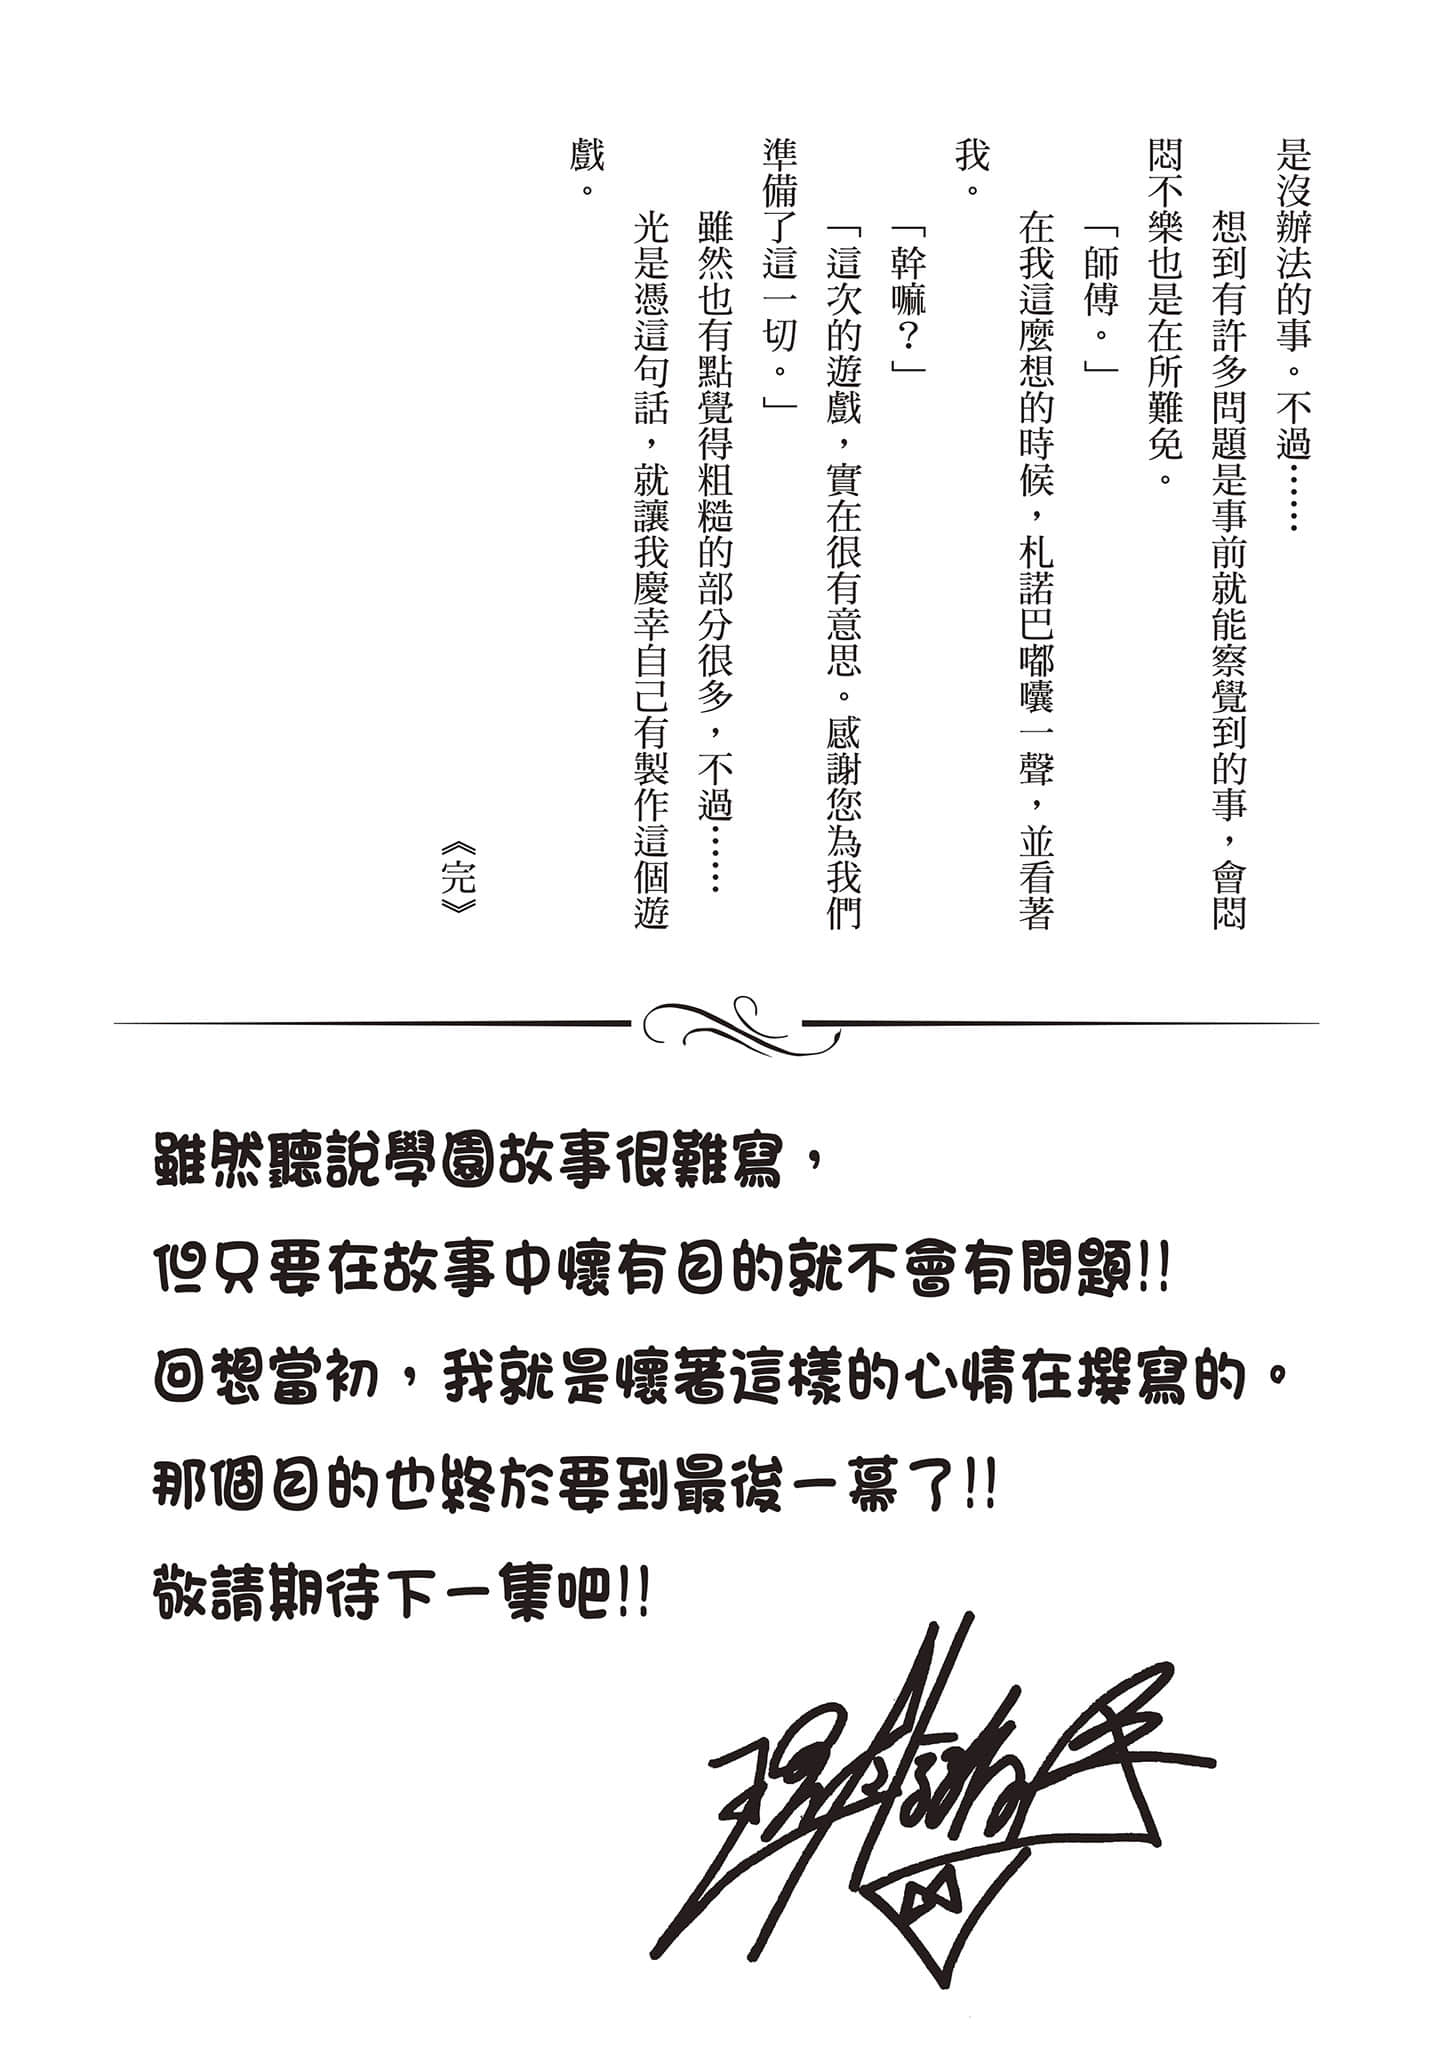 是沒辦法的事。不過……
想到有許多問題是事前就能察覺到的事，會悶
悶不樂也是在所難免。
「師傅。」
在我這麼想的時候，札諾巴嘟囔一聲，並看著
我。
「幹嘛？」
「這次的遊戲，實在很有意思。感謝您為我們
準備了這一切。」
雖然也有點覺得粗糙的部分很多，不過……
光是憑這句話，就讓我慶幸自己有製作這個遊
戲。
《完》
雖然聽說學園故事很難寫，
但只要在故事中懷有目的就不會有問題!!
回想當初，我就是懷著這樣的心情在撰寫的。
那個目的也終於要到最後一幕了!!
敬請期待下一集吧!!